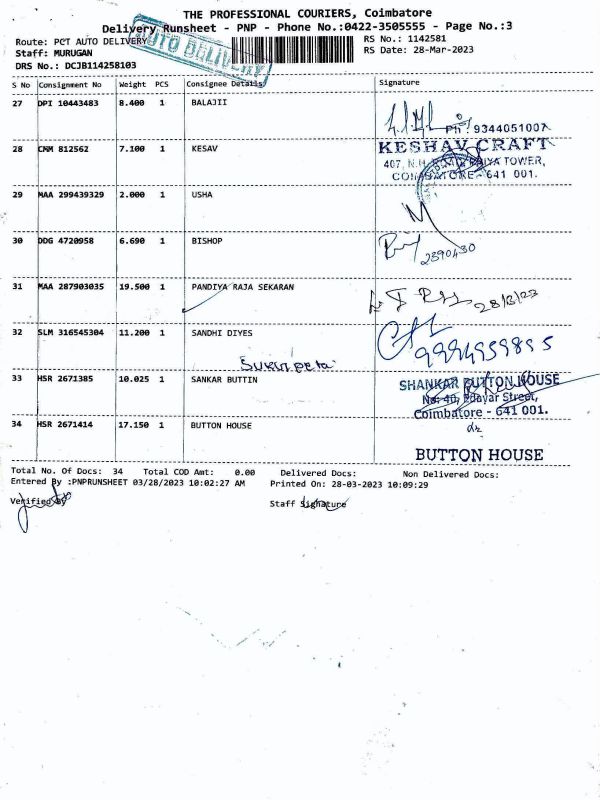 THE PROFESSIONAL COURIERS, Coimbatore
Delivery Runsheet - PNP - Phone No.:0422-3505555 - Page No.:3
Route: PCT AUTO DELIVERY
AUTO DELIVERY
RS No.: 1142581
Staff: MURUGAN
RS Date: 28-Mar-2023
DRS No.: DCJB114258103
S No Consignment No Weight PCS Consignee Details Signature
27 DPI 10443483 8.400 1 BALAJII
Ph: 9344051007
28 CNM 812562 7.100 1 KESAV
KESHAV CRAFT
TOWER,
COIMBATORE - 641 001.
29 MAA 299439329 2.000 1 USHA
30 DDG 4720958 6.690 1 BISHOP
2390430
31 MAA 287903035 19.500 1 PANDIYA RAJA SEKARAN
28/3/23
32 SLM 316545304 11.200 1 SANDHI DIYES
9994959895
33 HSR 2671385 10.025 1 SANKAR BUTTIN
SHANKAR BUTTON HOUSE
Street,
Coimbatore - 641 001.
34 HSR 2671414 17.150 1 BUTTON HOUSE
BUTTON HOUSE
Total No. Of Docs: 34 Total COD Amt: 0.00 Delivered Docs: Non Delivered Docs:
Entered By :PNPRUNSHEET 03/28/2023 10:02:27 AM Printed On: 28-03-2023 10:09:29
Verified By Staff Signature